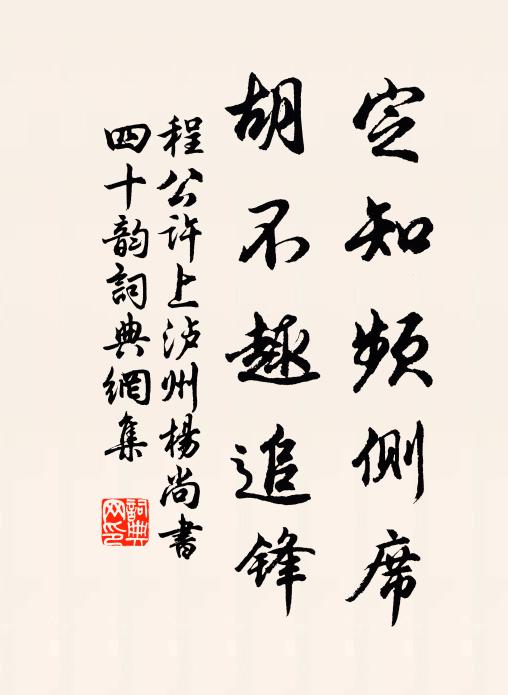 定知频侧席
胡不趣追锋
程公许上泸州杨尚书
四十韵词典网集
詞典
网印